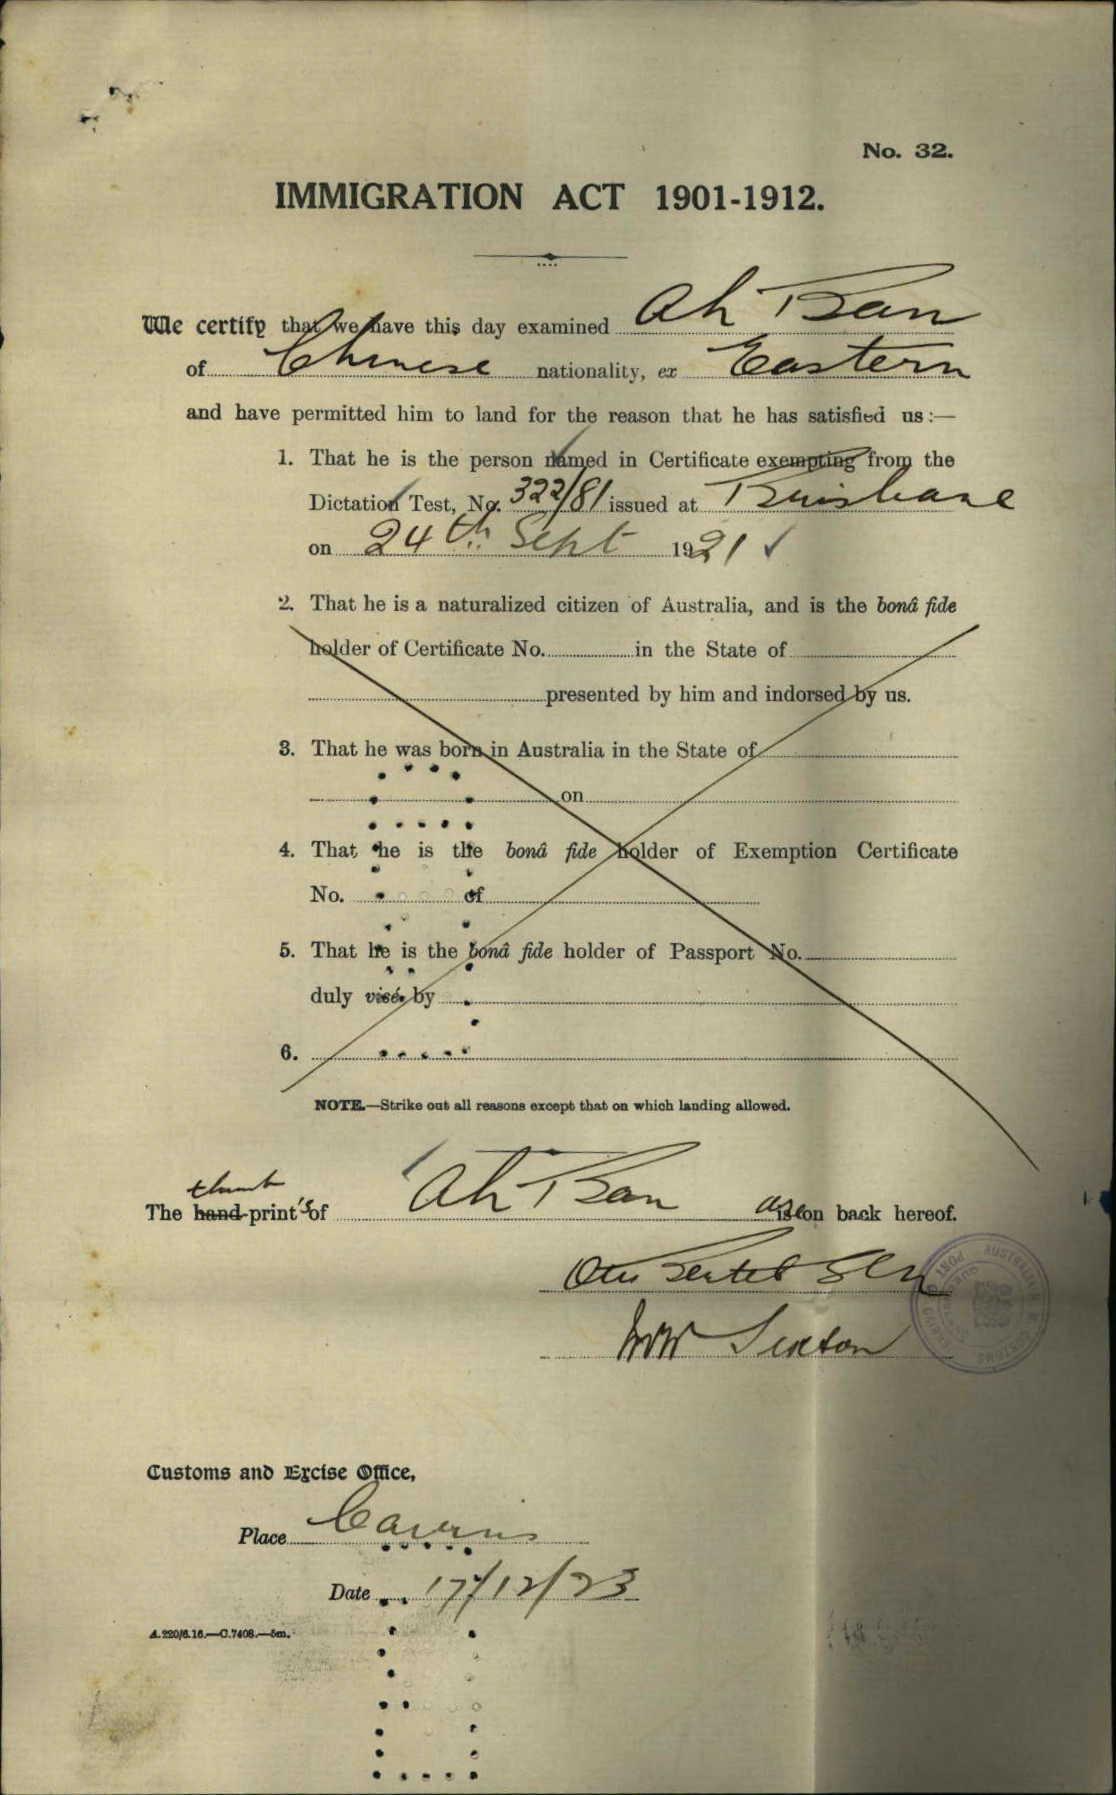 No. 32.
IMMIGRATION ACT 1901-1912.
We certify that we have this day examined Ah Ban
of Chinese nationality, ex Eastern
and have permitted him to land for the reason that he has satisfied us:—
1. That he is the person named in Certificate exempting from the
Dictation Test, No. 322/81 issued at Brisbane
on 24th Sept 1921
2. That he is a naturalized citizen of Australia, and is the bonâ fide
holder of Certificate No. in the State of
presented by him and indorsed by us.
3. That he was born in Australia in the State of
on
4. That he is the bonâ fide holder of Exemption Certificate
No. of
5. That he is the bonâ fide holder of Passport No.
duly visé by
6.
NOTE.—Strike out all reasons except that on which landing allowed.
thumb
The hand-print's of Ah Ban are is on back hereof.
Sexton
Customs and Excise Office,
Place Cairns
Date 17/12/23
A.220/6.16.—C.7408.—5m.